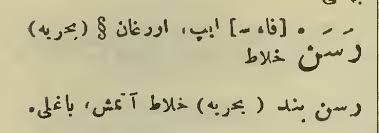 رَسَن . [فا، ـ] ایپ، اورغان § (بحریه)
خلاط
رسن بند (بحریه) خلاط آتمش، باغلی.